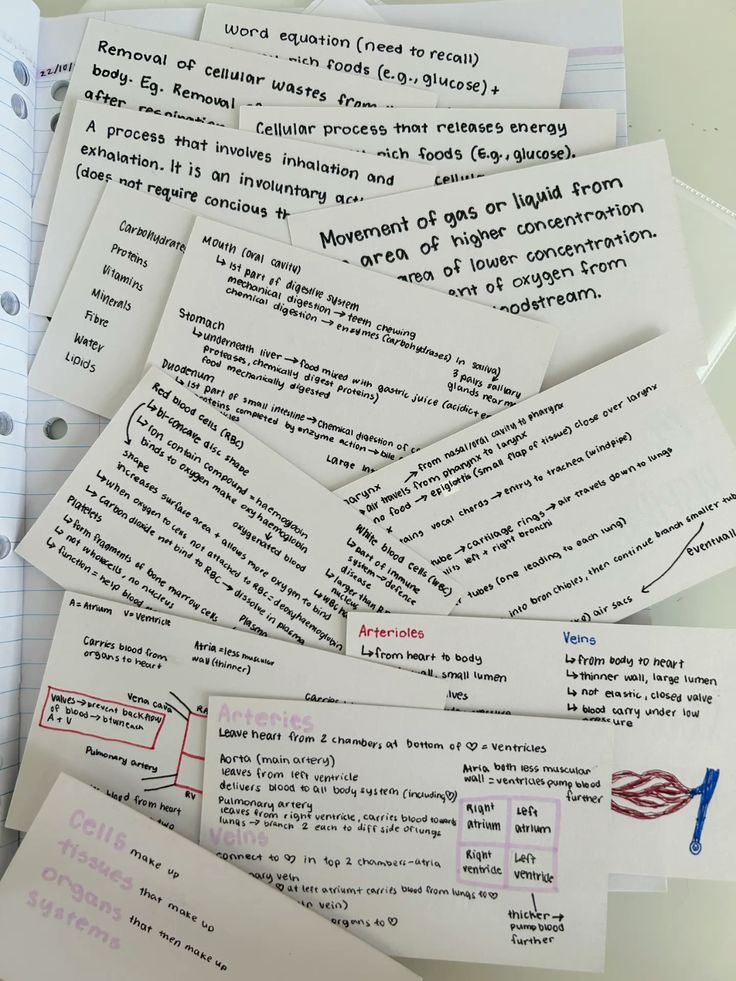 22/10/
word equation (need to recall)
rich foods (e.g., glucose) +
Removal of cellular wastes from
body. Eg. Removal
after respiration
Cellular process that releases energy
rich foods (E.g., glucose).
A process that involves inhalation and
exhalation. It is an involuntary
(does not require concious
Movement of gas or liquid from
area of higher concentration
area of lower concentration.
of oxygen from
bloodstream.
Carbohydrate
Proteins
Vitamins
Minerals
Fibre
Water
Lipids
Mouth (oral cavity)
↳ 1st part of digestive system
mechanical digestion → teeth chewing
chemical digestion → enzymes (carbohydrases) in saliva)
3 pairs salivary
glands near
Stomach
↳ underneath liver → food mixed with gastric juice (acidic
proteases, chemically digest proteins)
food mechanically digested
Duodenum
↳ 1st part of small intestine → Chemical digestion of
proteins completed by enzyme action → bile
Large
→ from nasal/oral cavity to pharynx
air travels from pharynx to larynx
no food → epiglottis (small flap of tissue) close over larynx
vocal chords → entry to trachea (windpipe)
tube → cartilage rings → air travels down to lungs
left + right bronchi
tubes (one leading to each lung)
into bronchioles, then continue branch smaller
air sacs
Red blood cells (RBC)
↳ bi-concave disc shape
↳ Iron contain compound = haemoglobin
binds to oxygen make oxyhaemoglobin
shape
oxygenated blood
increases surface area + allows more oxygen to bind
↳ when oxygen to cells not attached to RBC = deoxyhaemoglobin
↳ Carbon dioxide not bind to RBC → dissolve in plasma
Platelets
↳ form fragments of bone marrow cells
↳ not whole cells, no nucleus
↳ function = help blood
Plasma
White blood cells (WBC)
↳ part of immune
system → defence
disease
↳ larger than
nucleus
A = Atrium V = Ventricle
Carries blood from
organs to heart
Atria = less muscular
wall (thinner)
Vena cava
RA
valves → prevent backflow
of blood → btwn each
A + V
Pulmonary artery
RV
blood from heart
two
Arterioles
↳ from heart to body
small lumen
Veins
↳ from body to heart
↳ thinner wall, large lumen
↳ not elastic, closed valve
↳ blood carry under low
pressure
Arteries
Leave heart from 2 chambers at bottom of ♡ = ventricles
Aorta (main artery)
leaves from left ventricle
delivers blood to all body system (including ♡)
Pulmonary artery
leaves from right ventricle, carries blood towards
lungs → branch 2 each to diff side of lungs
Atria both less muscular
wall = ventricles pump blood
further
Right atrium
Left atrium
Right ventricle
Left ventricle
thicker →
pump blood
further
Veins
connect to ♡ in top 2 chambers - atria
vein
♡ at left atrium + carries blood from lungs to ♡
vein)
organs to ♡
Cells make up
tissues that make up
organs that then make up
systems